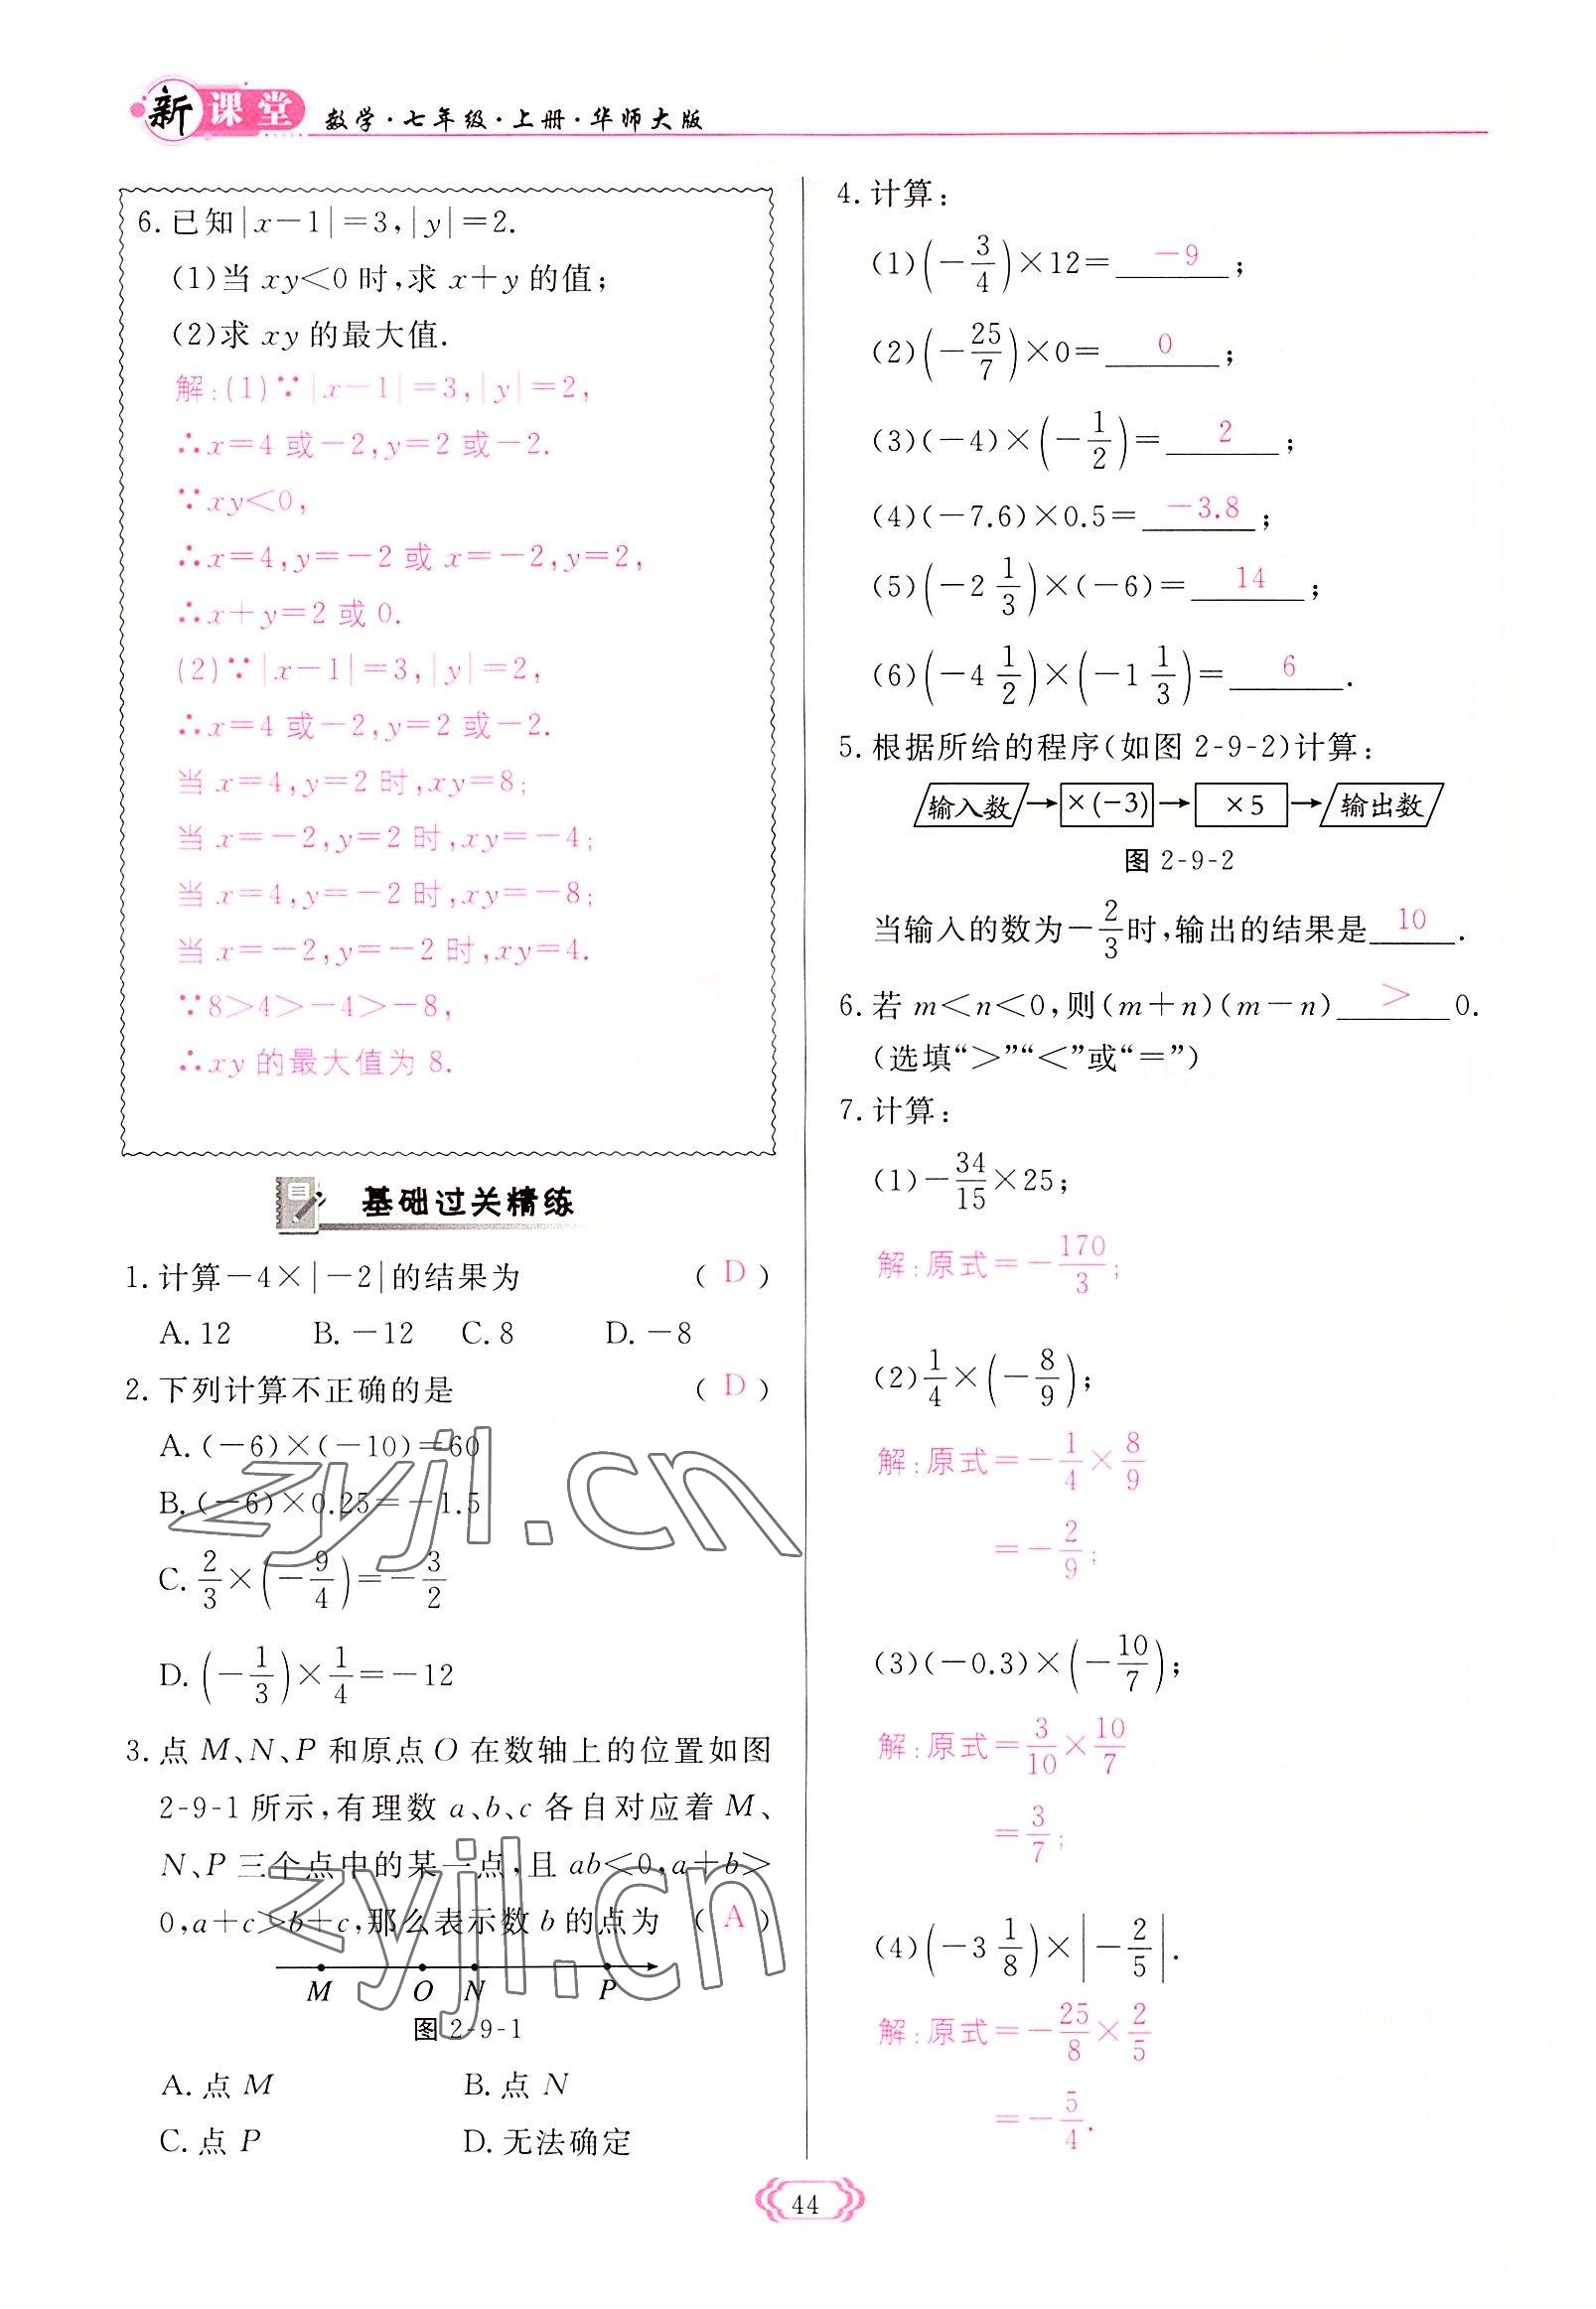 新课堂 数学·七年级·上册·华师大版
6.已知|x-1|=3,|y|=2.
(1)当 xy<0 时,求 x+y 的值;
(2)求 xy 的最大值.
解:(1)∵|x-1|=3,|y|=2,
∴x=4 或-2,y=2 或-2.
∵xy<0,
∴x=4,y=-2 或 x=-2,y=2,
∴x+y=2 或 0.
(2)∵|x-1|=3,|y|=2,
∴x=4 或-2,y=2 或-2.
当 x=4,y=2 时,xy=8;
当 x=-2,y=2 时,xy=-4;
当 x=4,y=-2 时,xy=-8;
当 x=-2,y=-2 时,xy=4.
∵8>4>-4>-8,
∴xy 的最大值为 8.
基础过关精练
1.计算-4×|-2|的结果为 ( D )
A.12 B.-12 C.8 D.-8
2.下列计算不正确的是 ( D )
A.(-6)×(-10)=60
B.(-6)×0.25=-1.5
C. 2/3×(-9/4)=-3/2
D.(-1/3)×1/4=-12
3.点 M、N、P 和原点 O 在数轴上的位置如图
2-9-1 所示,有理数 a、b、c 各自对应着 M、
N、P 三个点中的某一点,且 ab<0,a+b>
0,a+c>b+c,那么表示数 b 的点为 ( A )
M O N P
图 2-9-1
A.点 M B.点 N
C.点 P D.无法确定
4.计算:
(1)(-3/4)×12= -9 ;
(2)(-25/7)×0= 0 ;
(3)(-4)×(-1/2)= 2 ;
(4)(-7.6)×0.5= -3.8 ;
(5)(-2 1/3)×(-6)= 14 ;
(6)(-4 1/2)×(-1 1/3)= 6 .
5.根据所给的程序(如图 2-9-2)计算:
输入数→×(-3)→×5→输出数
图 2-9-2
当输入的数为-2/3时,输出的结果是 10 .
6.若 m<n<0,则(m+n)(m-n) > 0.
(选填“>”“<”或“=”)
7.计算:
(1)-34/15×25;
解:原式=-170/3;
(2)1/4×(-8/9);
解:原式=-1/4×8/9
=-2/9;
(3)(-0.3)×(-10/7);
解:原式=3/10×10/7
=3/7;
(4)(-3 1/8)×|-2/5|.
解:原式=-25/8×2/5
=-5/4.
44
zyjl.cn
zyjl.cn